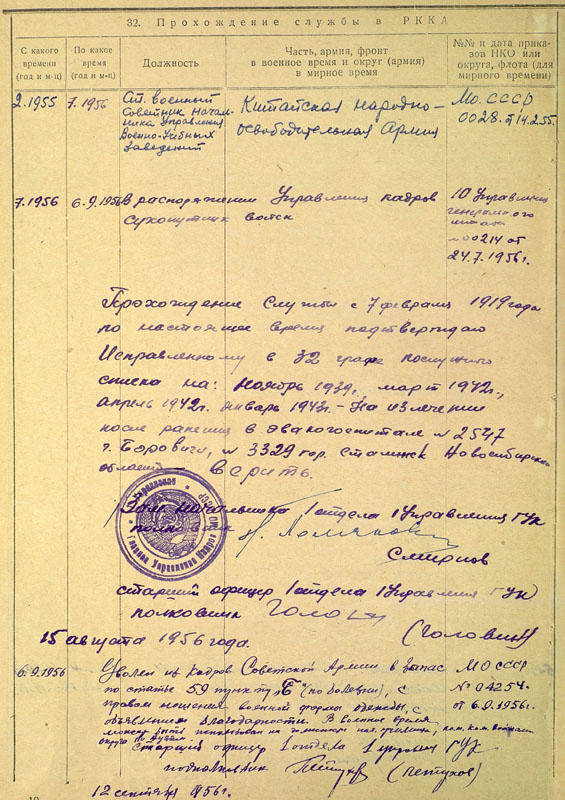 32. Прохождение службы в РККА
С какого времени (год и м-ц)
По какое время (год и м-ц)
Должность
Часть, армия, фронт
в военное время и округ (армия)
в мирное время
№№ и дата приказов НКО или округа, флота (для мирного времени)
2.1955
7.1956
Ст. военный
Советник Началь-
ника Управления
Военно-Учебных
Заведений
Китайская Народно-
освободительная Армия
МО. СССР
0028. от 14.2.55.
7.1956
6.9.1956
В распоряжении Управления кадров
Сухопутных войск
10 Управления
генерального
штаба
№ 00214 от
24.7.1956г.
Прохождение Службы с 7 февраля 1919 года
по настоящее время подтверждаю
Исправленному в 32 графе послужного
списка на: ноябрь 1939г., март 1942г.,
апрель 1942г. январь 1943г. – На излечении
после ранения в эвакогоспитале № 2547
г. Боровичи, № 3329 гор. Сталинск Новосибирской
области – верить.
Зам. начальника 1 отдела 1 Управления ГУК
полковник
Смирнов
Главное Управление Кадров
старший офицер 1 отдела 1 Управления ГУК
полковник
(Головин)
15 августа 1956 года.
6.9.1956
Уволен из Кадров Советской Армии в запас
по статье 59 пункту „Б" (по болезни), с
правом ношения военной формы одежды, с
объявлением благодарности. В военное время
может быть использован на должности нач. училища, пом. ком. войсками
округа по вузам.
МО СССР
№ 04254.
от 6.9.1956г.
Старший офицер 1 отдела 1 управления ГУК
подполковник
(Петухов)
12 сентября 1956г.